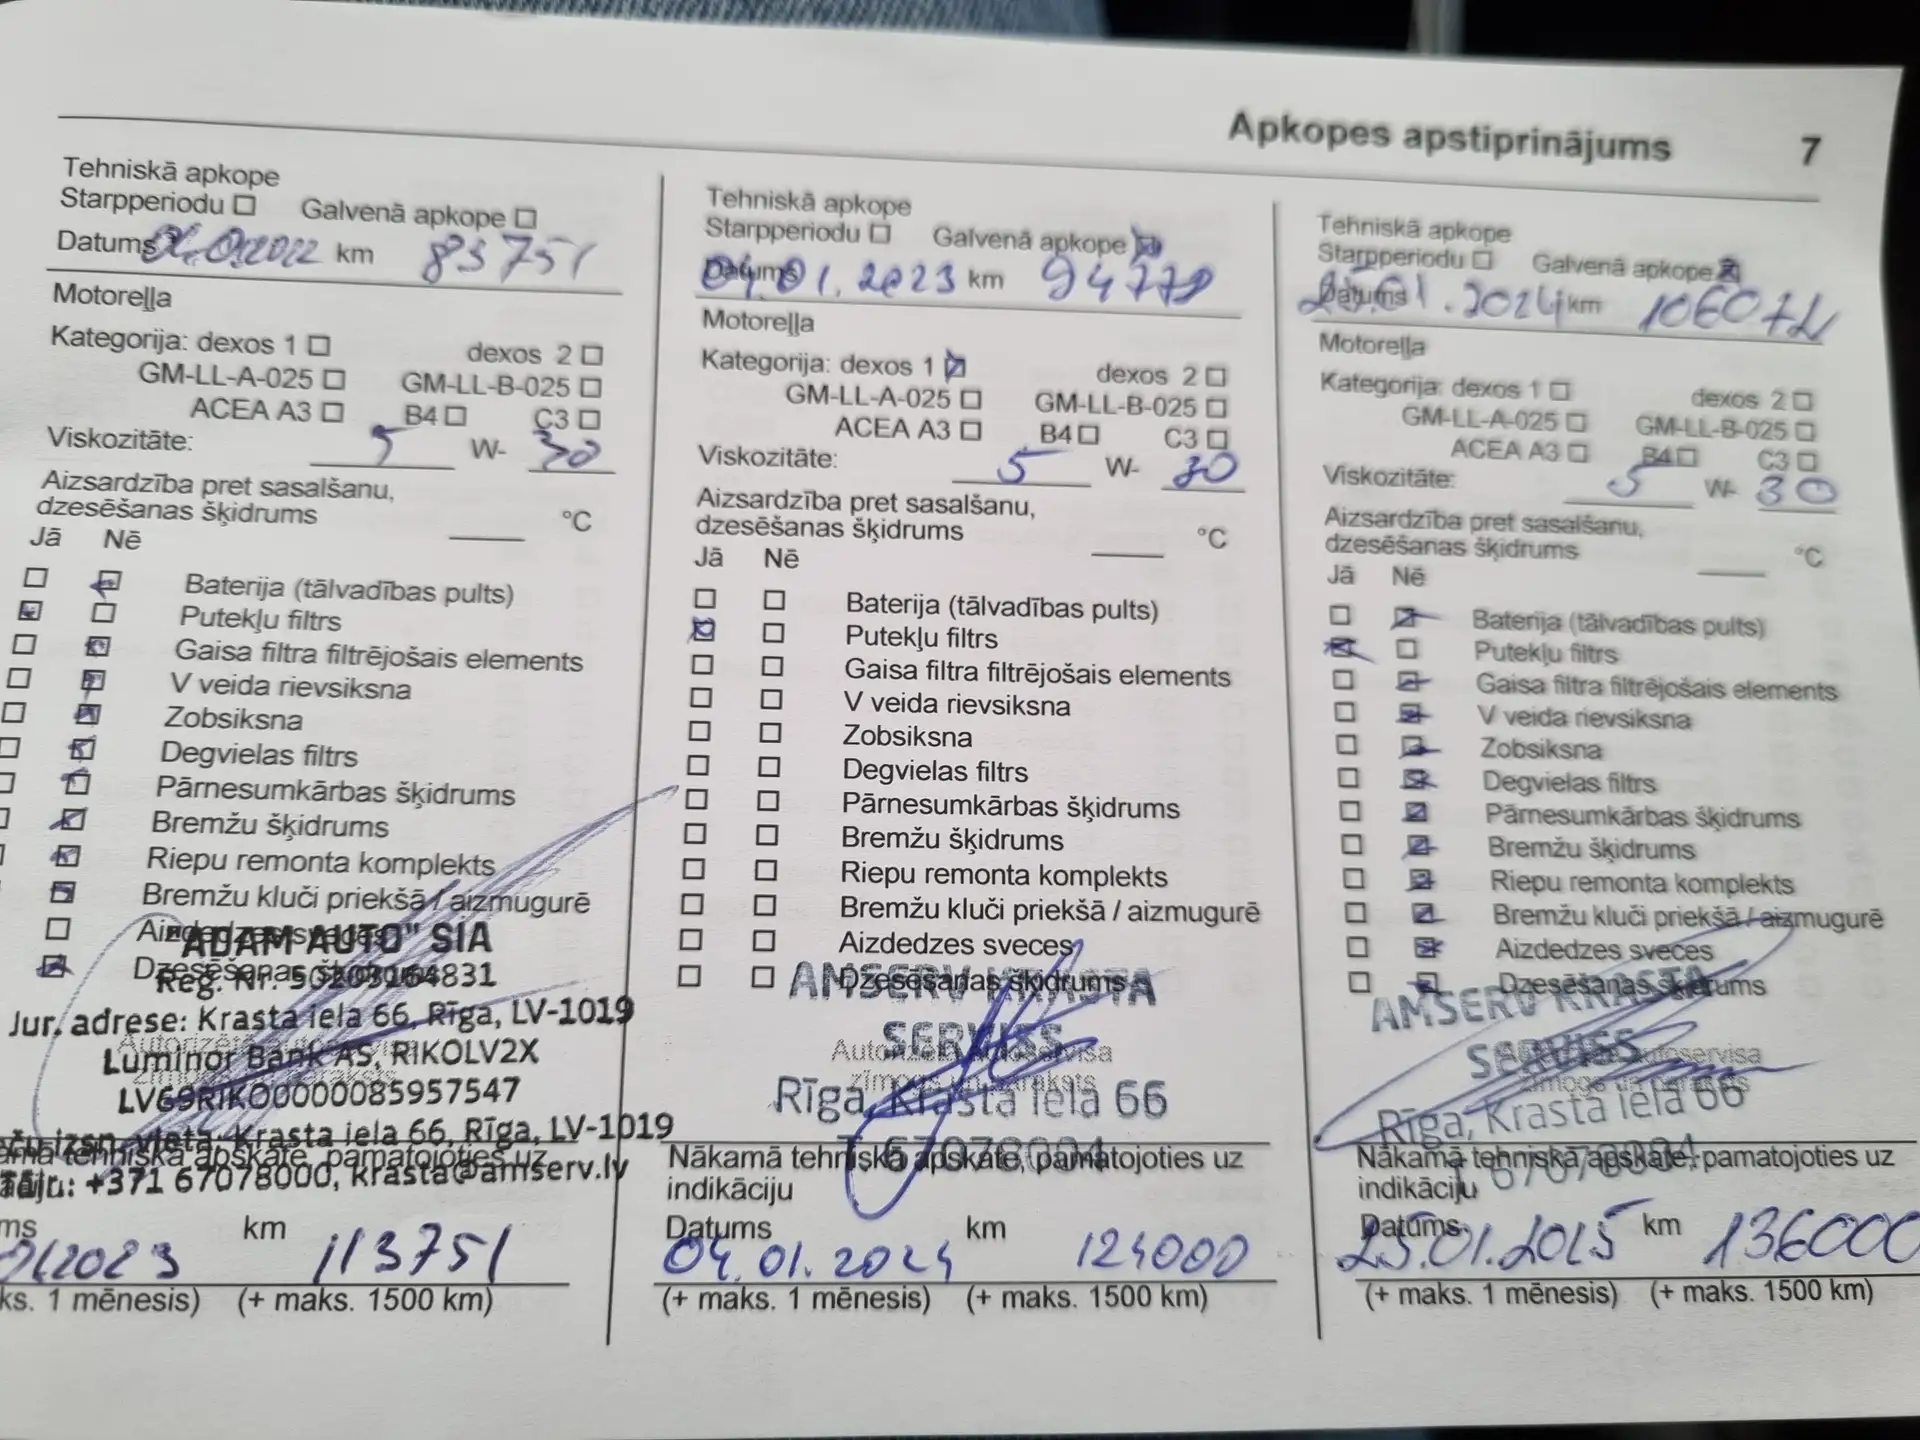 Apkopes apstiprinājums 7
Tehniskā apkope
Starpperiodu Galvenā apkope
Datums km 83751
Motoreļļa
Kategorija: dexos 1 dexos 2
GM-LL-A-025 GM-LL-B-025
ACEA A3 B4 C3
Viskozitāte: 5 W- 30
Aizsardzība pret sasalšanu,
dzesēšanas šķidrums °C
Jā Nē
Baterija (tālvadības pults)
Putekļu filtrs
Gaisa filtra filtrējošais elements
V veida rievsiksna
Zobsiksna
Degvielas filtrs
Pārnesumkārbas šķidrums
Bremžu šķidrums
Riepu remonta komplekts
Bremžu kluči priekšā / aizmugurē
Aizdedzes sveces
"ADAM AUTO" SIA
Dzesēšanas šķidrums
Reģ. Nr. 50203164831
Jur. adrese: Krasta iela 66, Rīga, LV-1019
Luminor Bank AS, RIKOLV2X
LV69RIKO0000085957547
izsn. vieta: Krasta iela 66, Rīga, LV-1019
tehniskā apskate, pamatojoties uz
+371 67078000, krasta@amserv.lv
km 113751
1 mēnesis) (+ maks. 1500 km)
Tehniskā apkope
Starpperiodu Galvenā apkope
Datums 04.01.2023 km 94779
Motoreļļa
Kategorija: dexos 1 dexos 2
GM-LL-A-025 GM-LL-B-025
ACEA A3 B4 C3
Viskozitāte: 5 W- 30
Aizsardzība pret sasalšanu,
dzesēšanas šķidrums °C
Jā Nē
Baterija (tālvadības pults)
Putekļu filtrs
Gaisa filtra filtrējošais elements
V veida rievsiksna
Zobsiksna
Degvielas filtrs
Pārnesumkārbas šķidrums
Bremžu šķidrums
Riepu remonta komplekts
Bremžu kluči priekšā / aizmugurē
Aizdedzes sveces
Dzesēšanas šķidrums
AMSERV KRASTA
SERVISS
Autorizēta autoservisa
zīmogs un paraksts
Rīga, Krasta iela 66
Nākamā tehniskā apskate, pamatojoties uz
indikāciju
Datums km
04.01.2024 124000
(+ maks. 1 mēnesis) (+ maks. 1500 km)
Tehniskā apkope
Starpperiodu Galvenā apkope
Datums 25.01.2024 km 106072
Motoreļļa
Kategorija: dexos 1 dexos 2
GM-LL-A-025 GM-LL-B-025
ACEA A3 B4 C3
Viskozitāte: 5 W- 30
Aizsardzība pret sasalšanu,
dzesēšanas šķidrums °C
Jā Nē
Baterija (tālvadības pults)
Putekļu filtrs
Gaisa filtra filtrējošais elements
V veida rievsiksna
Zobsiksna
Degvielas filtrs
Pārnesumkārbas šķidrums
Bremžu šķidrums
Riepu remonta komplekts
Bremžu kluči priekšā / aizmugurē
Aizdedzes sveces
Dzesēšanas šķidrums
AMSERV KRASTA
SERVISS
autoservisa
zīmogs un paraksts
Rīga, Krasta iela 66
Nākamā tehniskā apskate, pamatojoties uz
indikāciju
Datums km
25.01.2025 136000
(+ maks. 1 mēnesis) (+ maks. 1500 km)